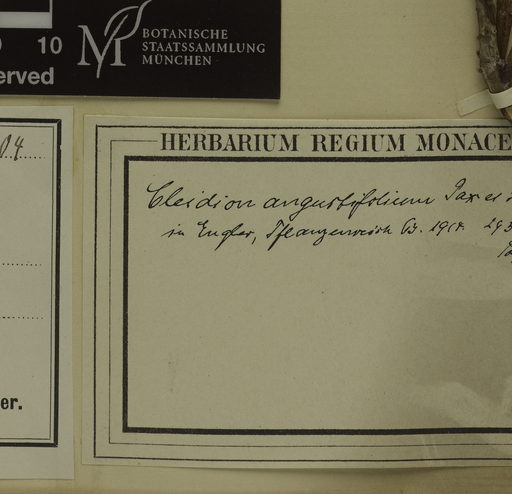 10
erved
M
BOTANISCHE
STAATSSAMMLUNG
MÜNCHEN
04
er.
HERBARIUM REGIUM MONACE
Cleidion angustifolium Pax et
in Engler, Pflanzenreich 63. 1914. 293